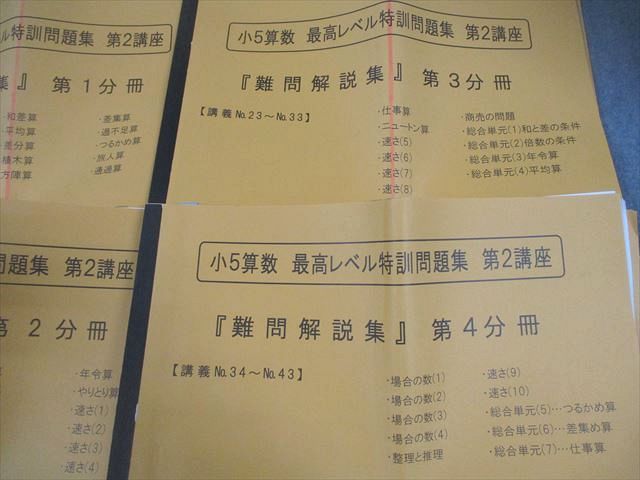 ル特訓問題集 第2講座
集』 第1分冊
・和差算
・平均算
・差分算
・植木算
方陣算
・差集算
・過不足算
・つるかめ算
・旅人算
・通過算
小5算数 最高レベル特訓問題集 第2講座
『難問解説集』 第3分冊
【講義No.23～No.33】
・仕事算
・ニュートン算
・速さ(5)
・速さ(6)
・速さ(7)
・速さ(8)
・商売の問題
・総合単元(1)和と差の条件
・総合単元(2)倍数の条件
・総合単元(3)年令算
・総合単元(4)平均算
問題集 第2講座
第2分冊
・年令算
・やりとり算
・速さ(1)
・速さ(2)
・速さ(3)
・速さ(4)
小5算数 最高レベル特訓問題集 第2講座
『難問解説集』 第4分冊
【講義No.34～No.43】
・場合の数(1)
・場合の数(2)
・場合の数(3)
・場合の数(4)
・整理と推理
・速さ(9)
・速さ(10)
・総合単元(5)…つるかめ算
・総合単元(6)…差集め算
・総合単元(7)…仕事算